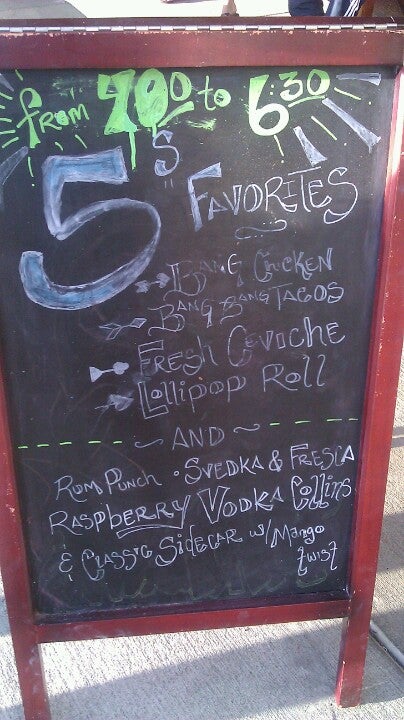 from 400 to 6:30
5$ Favorites
Bang Chicken
Bang Bang Tacos
Fresh Ceviche
Lollipop Roll
~ AND ~
Rum Punch • Svedka & Fresca
Raspberry Vodka Collins
& Classic Sidecar w/ Mango
twist